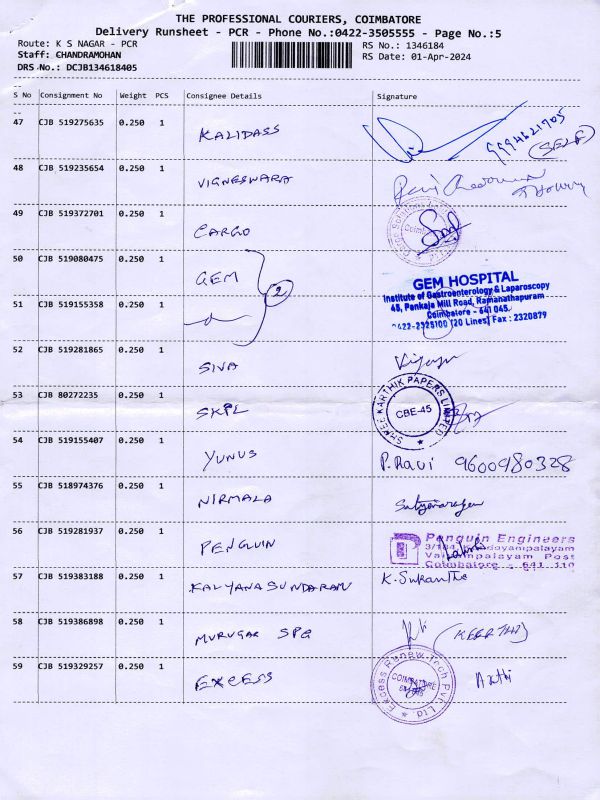 THE PROFESSIONAL COURIERS, COIMBATORE
Delivery Runsheet - PCR - Phone No.:0422-3505555 - Page No.:5
Route: K S NAGAR - PCR RS No.: 1346184
Staff: CHANDRAMOHAN RS Date: 01-Apr-2024
DRS No.: DCJB134618405
S No Consignment No Weight PCS Consignee Details Signature
47 CJB 519275635 0.250 1 KALIDASS 9994621705
(SELF)
48 CJB 519235654 0.250 1 VIGNESWARA
49 CJB 519372701 0.250 1 CARGO
50 CJB 519080475 0.250 1 GEM 2 GEM HOSPITAL
Institute of Gastroenterology & Laparoscopy
45, Pankaja Mill Road, Ramanathapuram
51 CJB 519155358 0.250 1 Coimbatore - 641 045.
0422-2325100 (20 Lines) Fax : 2320879
52 CJB 519281865 0.250 1 SIVA
53 CJB 80272235 0.250 1 SKPL SHREE KARTHIK PAPERS LIMITED CBE-45
54 CJB 519155407 0.250 1 YUNUS P. Ravi 9600980328
55 CJB 518974376 0.250 1 NIRMALA
56 CJB 519281937 0.250 1 PENGUIN Penguin Engineers
Post
Coimbatore - 641 110
57 CJB 519383188 0.250 1 KALYANASUNDARAM K. Sukantha
58 CJB 519386898 0.250 1 MURUGAR SPG
59 CJB 519329257 0.250 1 EXCESS Excess Renew Tech Pvt. Ltd. COIMBATORE